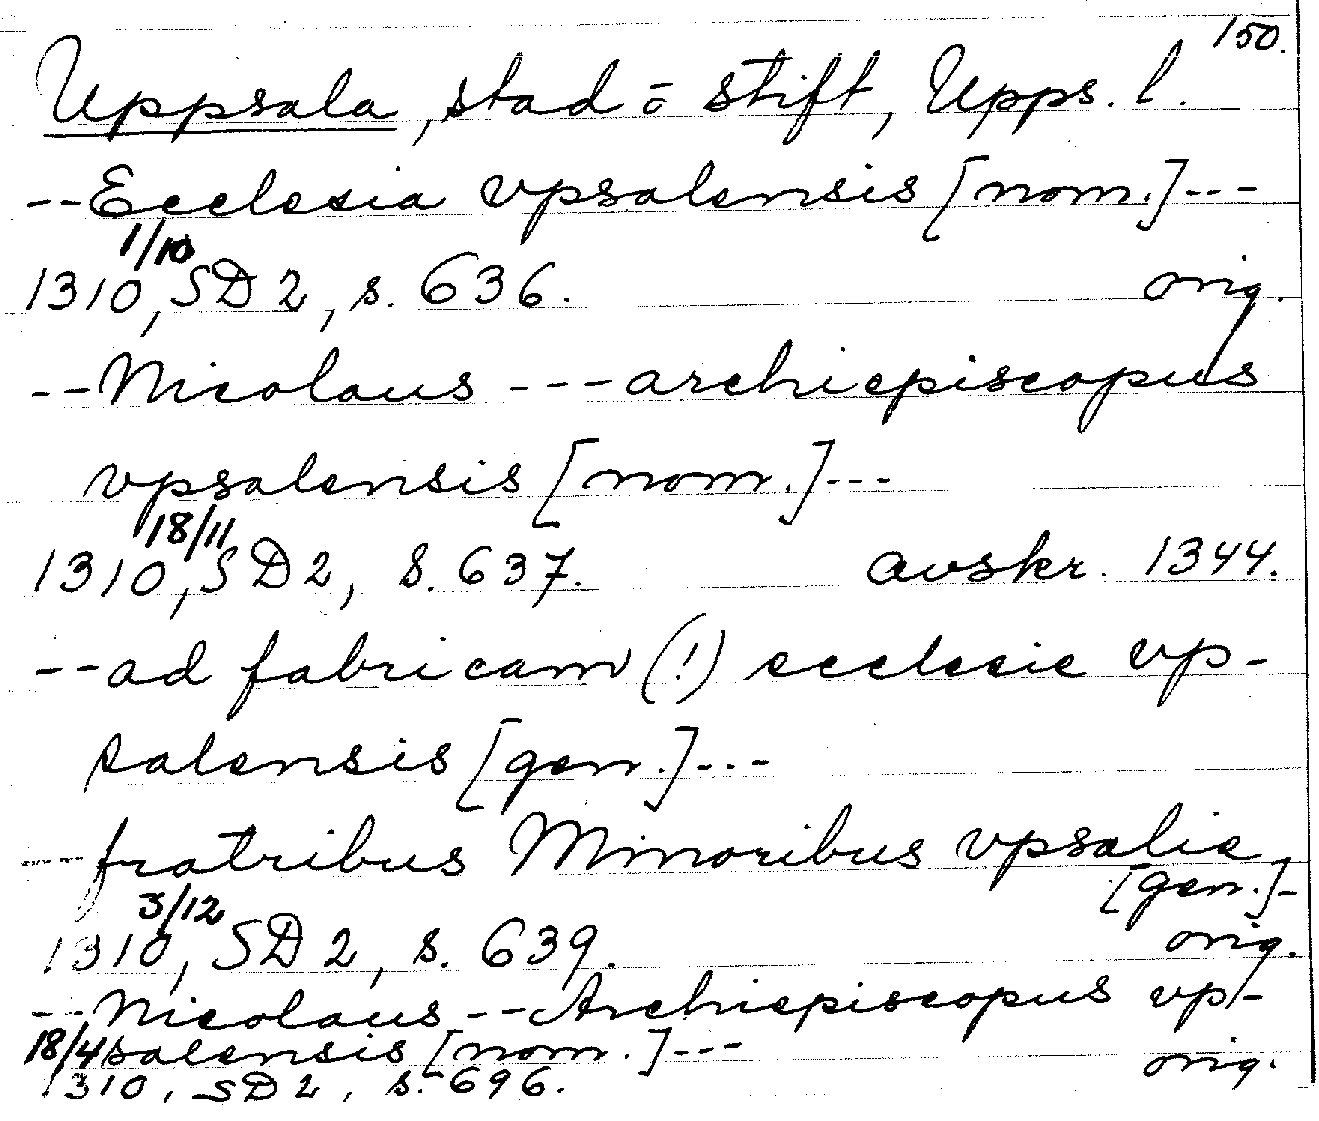 150.
Uppsala, stad o stift, Upps. l.
--Ecclesia vpsalensis [nom.]---
1/10
1310, SD 2, s. 636. orig.
--Nicolaus ---archiepiscopus
vpsalensis [nom.]---
18/11
1310, SD 2, s. 637. avskr. 1344.
--ad fabricam (!) ecclesie vp-
salensis [gen.]---
---fratribus Minoribus vpsalie
[gen.]-
3/12
1310, SD 2, s. 639. orig.
--Nicolaus --Archiepiscopus vp-
18/4 salensis [nom.]---
1310, SD 2, s. 696. orig.